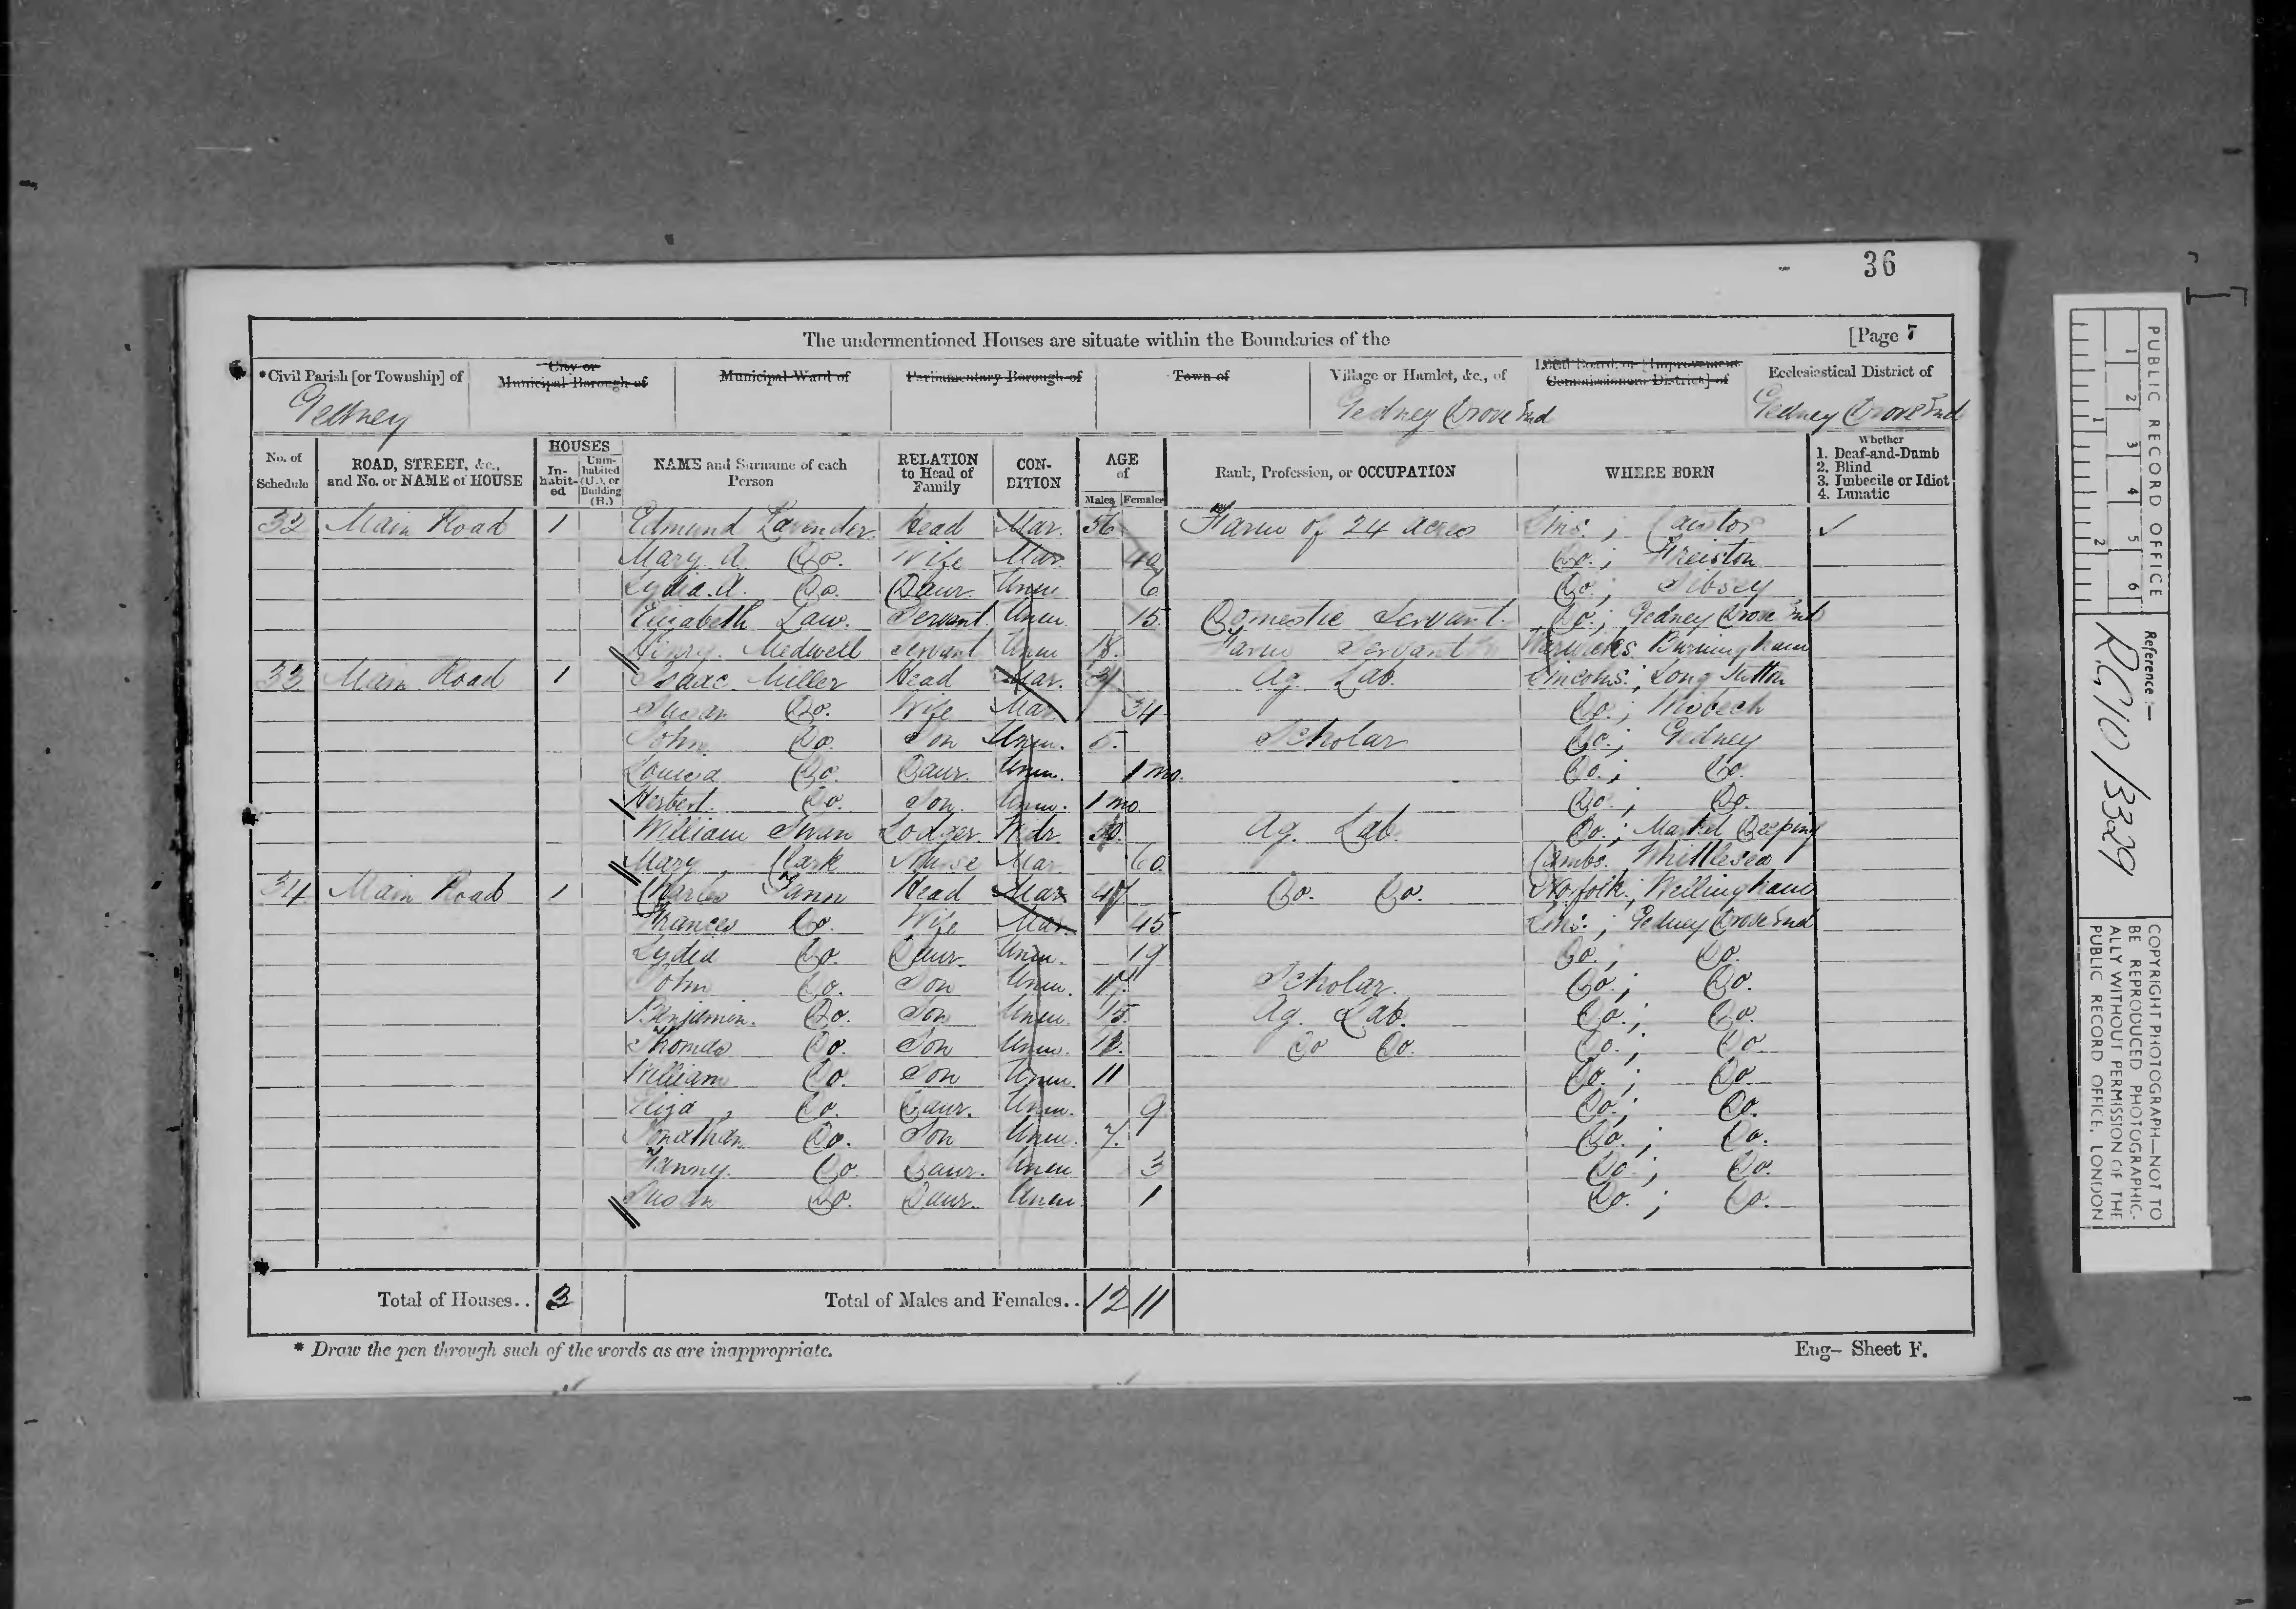 36
The undermentioned Houses are situate within the Boundaries of the [Page 7
*Civil Parish [or Township] of City or Municipal Borough of Municipal Ward of Parliamentary Borough of Town of Village or Hamlet, &c., of Local Board, or [Improvement Commissioners District] of Ecclesiastical District of
Gedney Gedney Drove End Gedney Drove End
No. of Schedule ROAD, STREET, &c., and No. or NAME of HOUSE HOUSES Inhabited Uninhabited (U.), or Building (B.) NAME and Surname of each Person RELATION to Head of Family CONDITION AGE of Males Females Rank, Profession, or OCCUPATION WHERE BORN Whether 1. Deaf-and-Dumb 2. Blind 3. Imbecile or Idiot 4. Lunatic
32 Main Road 1 Edmund Lavender Head Mar. 56 Farm of 24 acres Lins.; Caistor
Mary. A. Do. Wife Mar. 42 Do.; Freiston
Lydia. A. Do. Daur. Unm 6 Do.; Sibsey
Elizabeth Law. Servant. Unm. 15. Domestic Servant. Do.; Gedney Drove End
Henry. Medwell Servant Unm 18. Farm Servant Warwicks Birmingham
33 Main Road 1 Isaac Miller Head Mar. 31 Ag. Lab. Lincolns.; Long Sutton
Susan Do. Wife Mar 34 Do.; Wisbech
John Do. Son Unm. 5. Scholar Do.; Gedney
Louisa Do. Daur. Unm. 1 mo. Do.; Do.
Herbert. Do. Son. Unm. 1 mo. Do.; Do.
William Swan Lodger. Wdr. 50. Ag. Lab. Do.; Market Deeping
Mary Clark Nurse Mar. 60 Cambs. Whittlesea
34 Main Road 1 Charles Fann Head Mar. 47 Do. Do. Norfolk; Wellingham
Frances Do. Wife Mar. 45 Lins.; Gedney Drove End
Lydia Do. Daur. Unm. 19 Do.; Do.
John Do. Son Unm. 17. Scholar. Do.; Do.
Benjamin. Do. Son Unm. 15. Ag. Lab. Do.; Do.
Thomas Do. Son Unm. 13. Do Do. Do.; Do.
William Do. Son Unm. 11 Do.; Do.
Eliza Do. Daur. Unm. 9 Do.; Do.
Jonathan Do. Son Unm. 7. Do.; Do.
Fanny. Do. Daur. Unm 3 Do.; Do.
Susan Do. Daur. Unm. 1 Do.; Do.
Total of Houses.. 3 Total of Males and Females.. 12 11
* Draw the pen through such of the words as are inappropriate. Eng- Sheet F.
PUBLIC RECORD OFFICE
1 2 3 4 5 6
1 2
Reference :-
RG10/3329
COPYRIGHT PHOTOGRAPH—NOT TO BE REPRODUCED PHOTOGRAPHICALLY WITHOUT PERMISSION OF THE PUBLIC RECORD OFFICE, LONDON